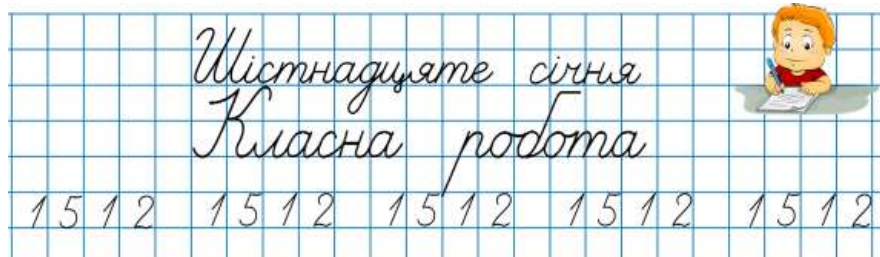 Шістнадцяте січня
Класна робота
1 5 1 2 1 5 1 2 1 5 1 2 1 5 1 2 1 5 1 2